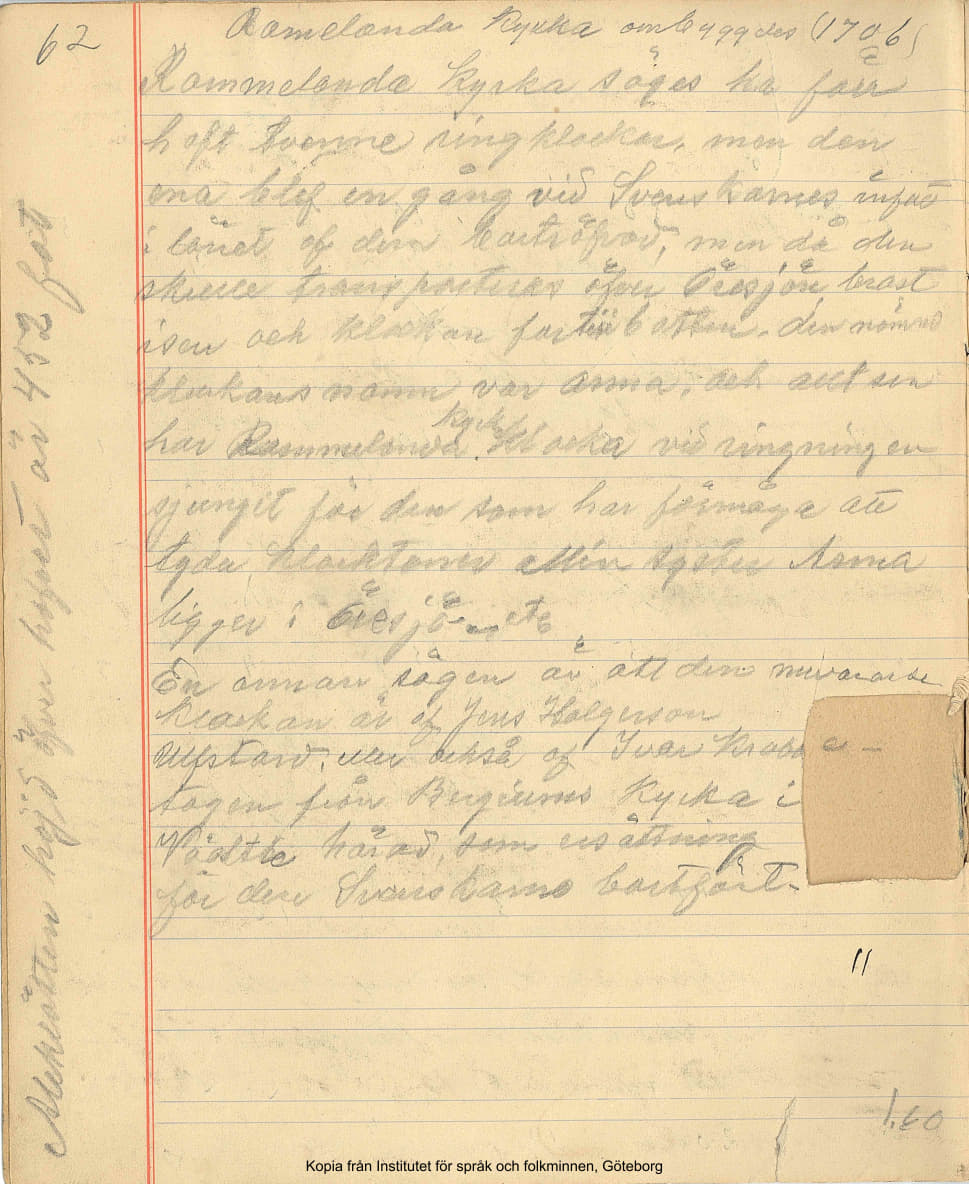 62
Romelanda Kyrka ombyggdes (1706)
Rommelanda Kyrka säges ha förr
haft tvenne ringklockor, men den
ena blef en gång vid Svenskarnes infall
i länet af dem bortröfvad, men då den
skulle transporteras öfver Öresjön, brast
isen och klockan for till botten, den nämnd
klockans namn var Anna, och allt sen
har Rommelanda Kyrk klocka vid ringningen
sjungit för den som har förmåga att
tyda klocktoner Min syster Anna
ligger i Öresjö etc
En annan sägen är att den nuvarande
klockan är af Jens Holgerson
Ulfstand, eller också af Ivar Krabbe
tagen från Bergums Kyrka i
Vättle härad, som ersättning
för den Svenskarne bortfört.
Aleklätten höjd öfver hafvet är 452 fot
11
1.60
Kopia från Institutet för språk och folkminnen, Göteborg